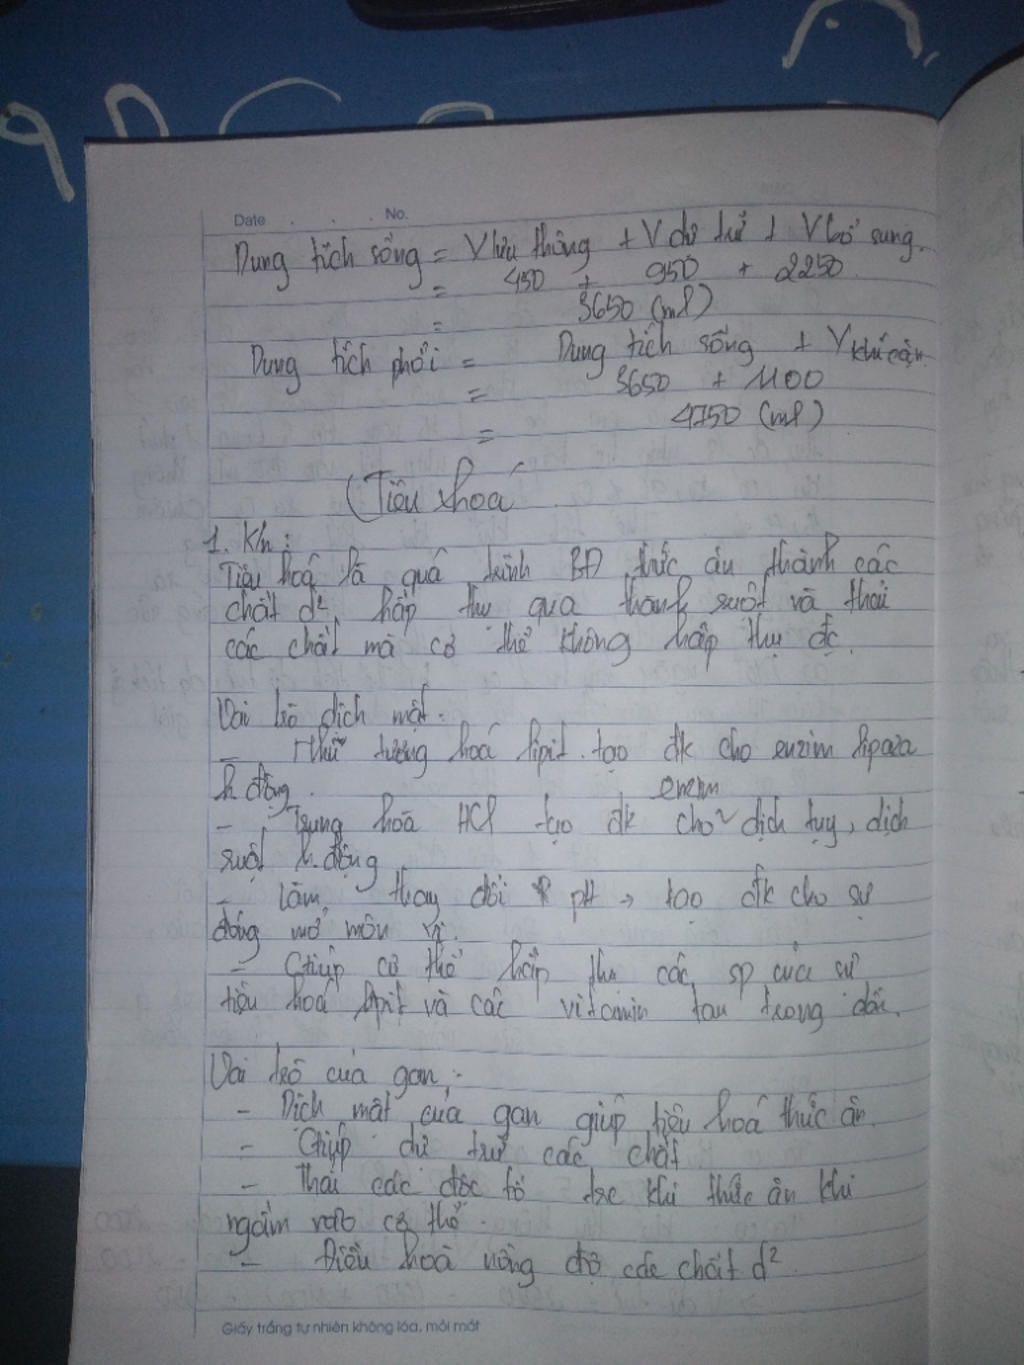 Date . . . No.
Dung tích sống = V lưu thông + V dự trữ + V bổ sung.
= 450 + 950 + 2250
= 3650 (ml)
Dung tích phổi = Dung tích sống + V khí cặn
= 3650 + 1100
= 4750 (ml)
Tiêu hoá
1. K/n:
Tiêu hoá là quá trình BĐ thức ăn thành các
chất d² hấp thụ qua thành ruột và thải
các chất mà cơ thể không hấp thụ đc.
Vai trò dịch mật.
- Nhũ tương hoá lipit. tạo đk cho enzim lipaza
h.động.
enzim
- Trung hoà HCl tạo đk cho dịch tuỵ, dịch
ruột h.động
- Làm thay đổi pH → tạo đk cho sự
đóng mở môn vị.
- Giúp cơ thể hấp thụ các sp của sự
tiêu hoá lipit và các vitamin tan trong dầu.
Vai trò của gan:
- Dịch mật của gan giúp tiêu hoá thức ăn.
- Giúp dự trữ các chất
- Thải các độc tố trc khi thức ăn khi
ngấm vào cơ thể.
- Điều hoà nồng độ các chất d²
Giấy trắng tự nhiên không lóa, mỏi mắt